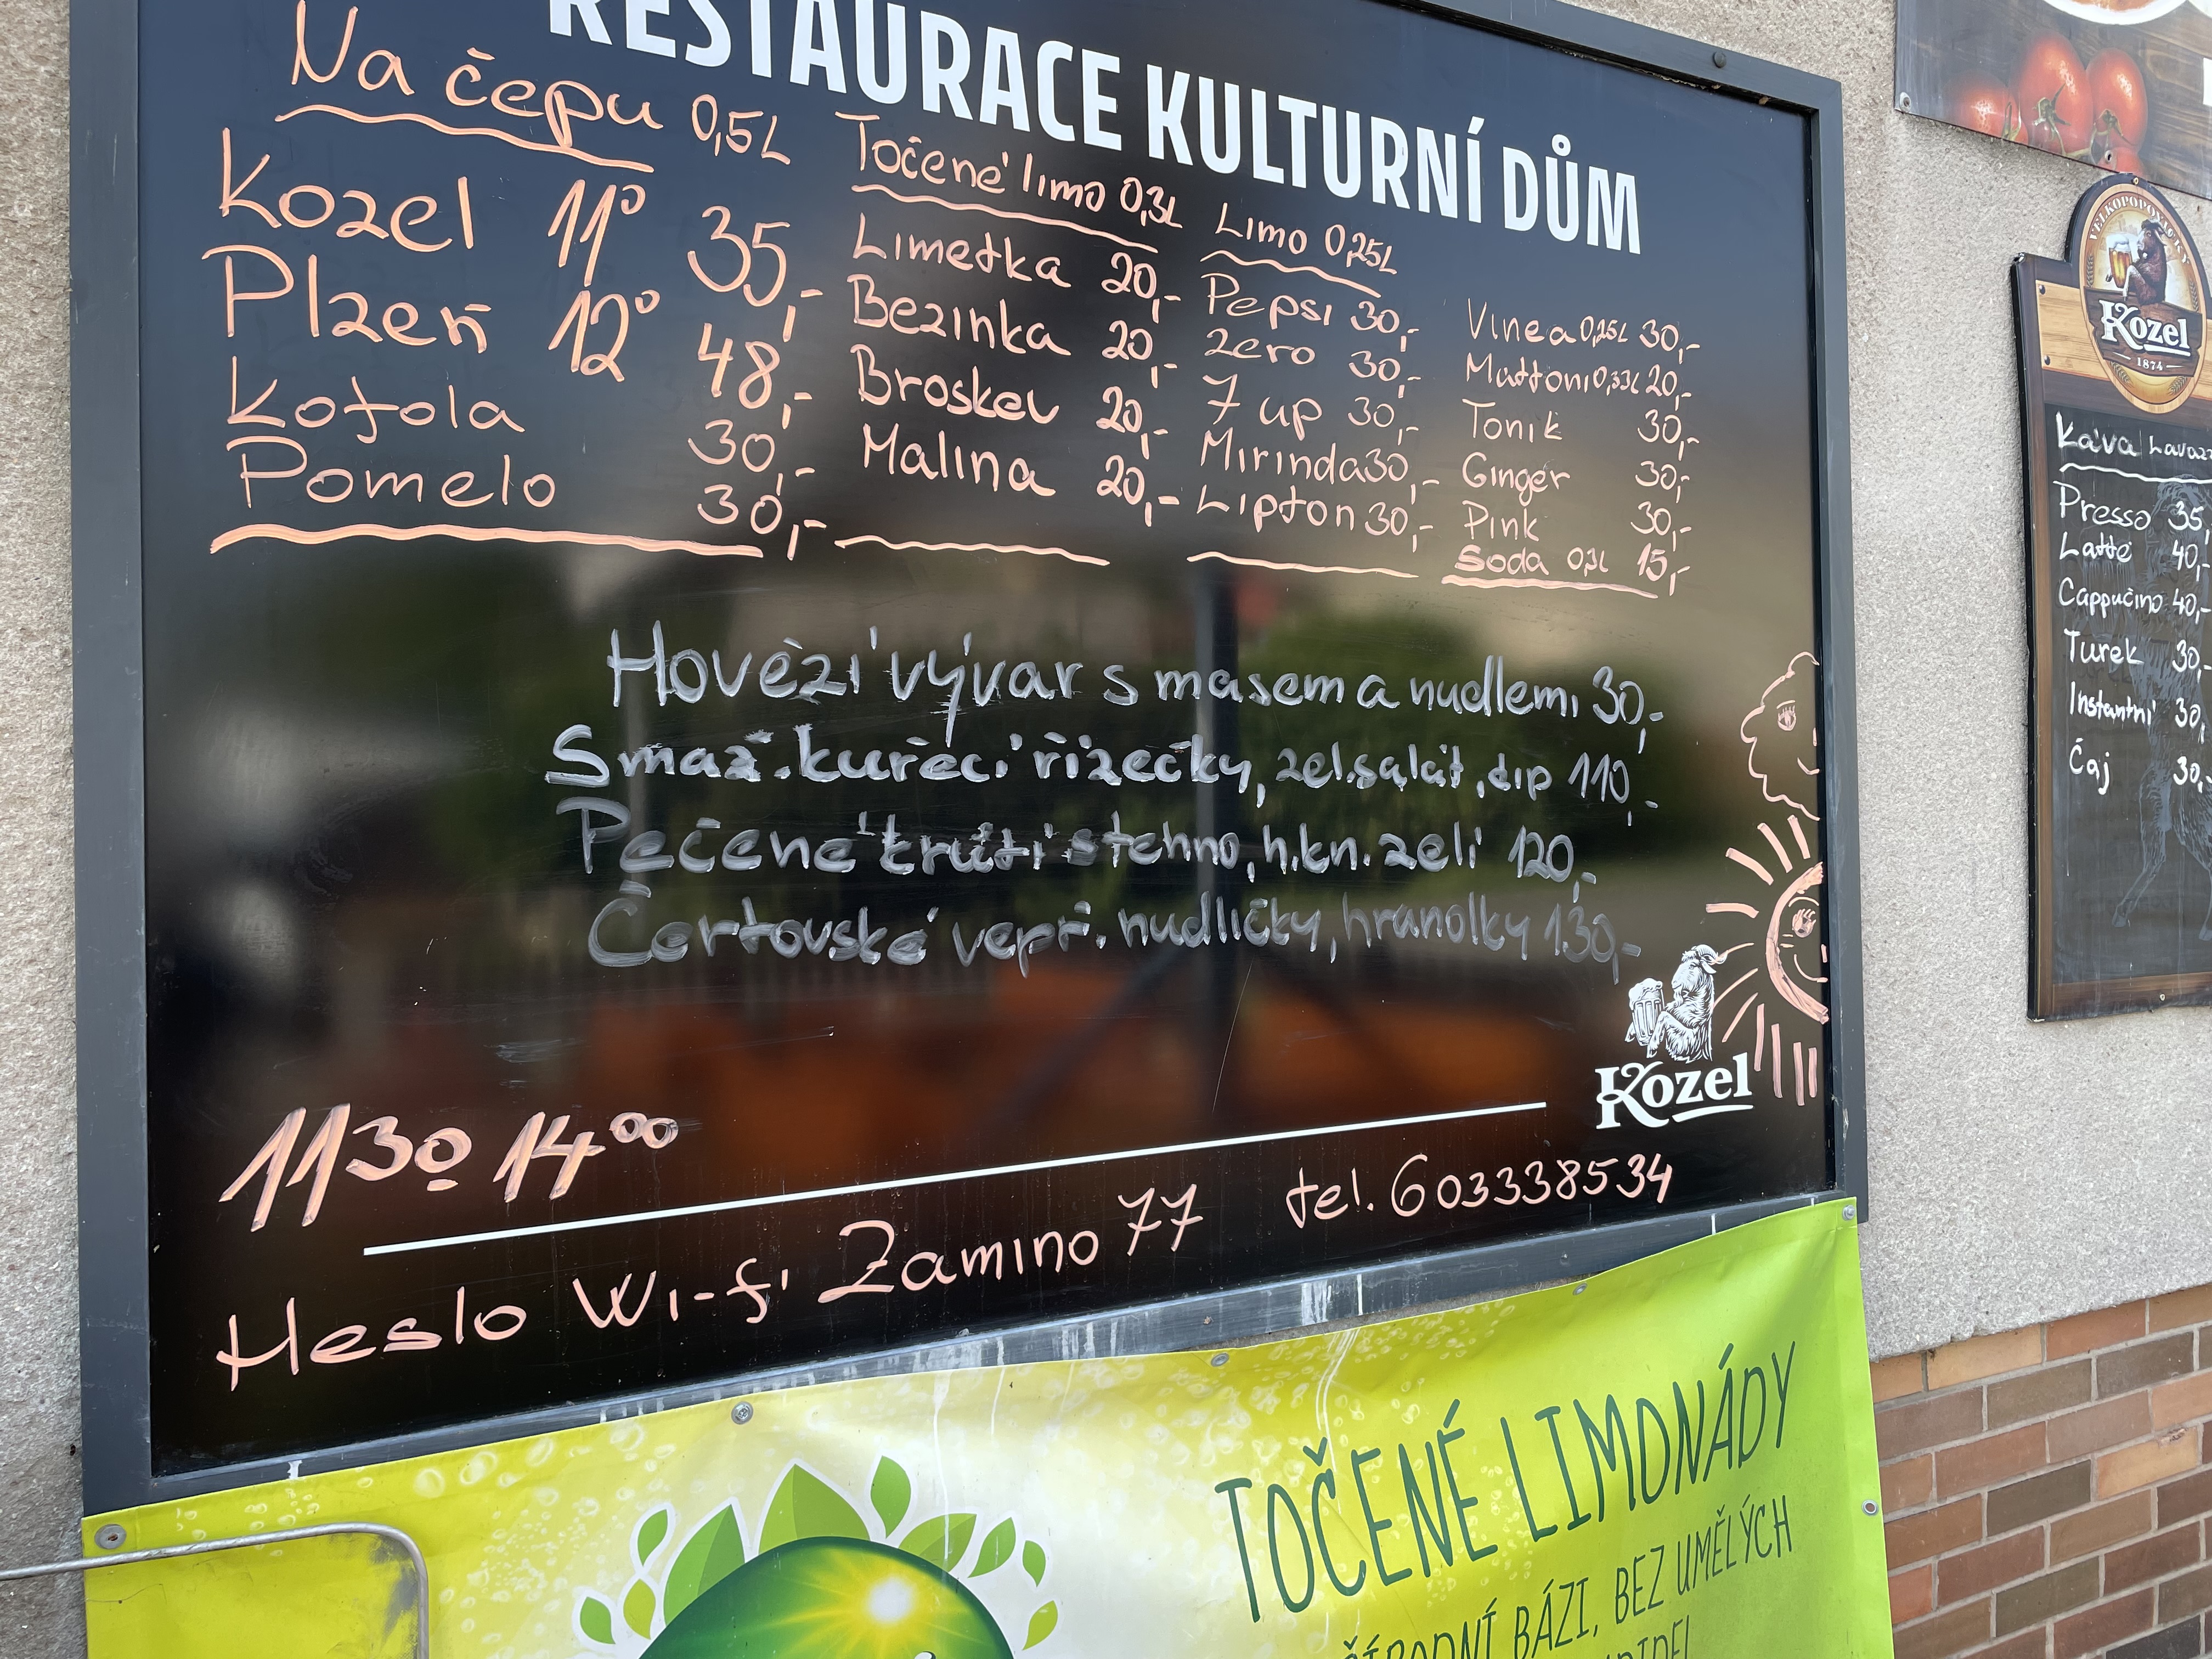 RESTAURACE KULTURNÍ DŮM
Na čepu 0,5L
Kozel 11° 35,-
Plzeň 12° 48,-
Kofola 30,-
Pomelo 30,-
Točené limo 0,3L
Limetka 20,-
Bezinka 20,-
Broskev 20,-
Malina 20,-
Limo 0,25L
Pepsi 30,-
Zero 30,-
7 up 30,-
Mirinda 30,-
Lipton 30,-
Vinea 0,25L 30,-
Mattoni 0,33L 20,-
Tonik 30,-
Ginger 30,-
Pink 30,-
Soda 0,3L 15,-
Hovězí vývar s masem a nudlemi 30,-
Smaž. kuřecí řízečky, zel. salát, dip 110,-
Pečené krůtí stehno, h.kn. zelí 120,-
Čertovské vepř. nudličky, hranolky 130,-
Kozel
11 30 14 00
Heslo Wi-fi Zamino 77 tel. 603338534
Kozel
1874
Káva Lavazz
Presso 35,
Latté 40,-
Cappučino 40,-
Turek 30,-
Instantní 30,
Čaj 30,-
TOČENÉ LIMONÁDY
BÁZI, BEZ UMĚLÝCH